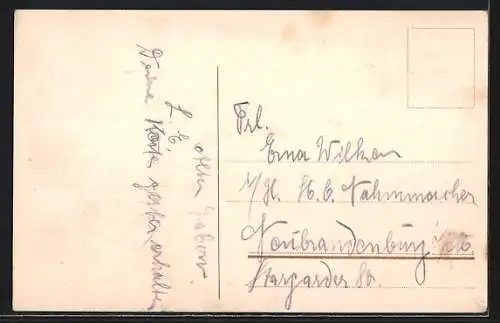 L. E.
Deine Karte gestern erhalten
Frl.
Erna Wilken
H. C. Nahmmacher
Neubrandenburg i/M.
Stargarder Str.